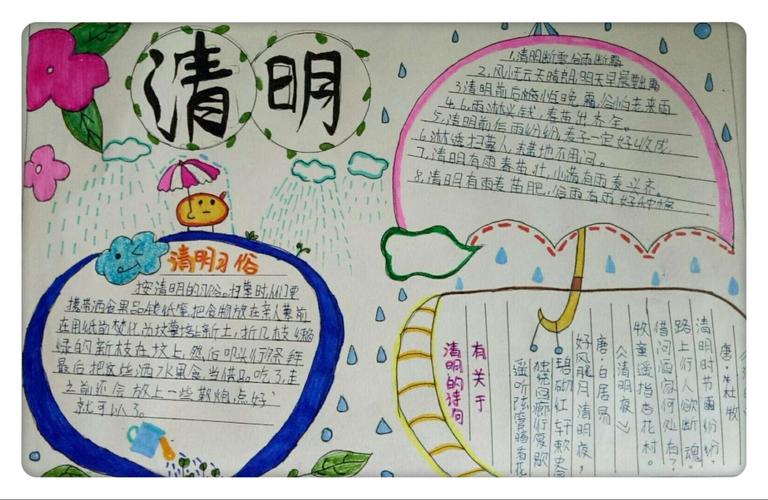 清明
1.清明断雪,谷雨断霜
2.风小无云天晴朗,明天早晨要出霜
3.清明前后怕晚霜,谷怕老来雨
4.雨淋火钱,麦苗出齐全。
5.清明前后雨纷纷,麦子一定好收成。
6.淋透扫墓人,耕地不用问。
7.清明有雨春苗壮,小满有雨麦头齐。
8.清明有雨麦苗肥,谷雨有雨好种棉
清明习俗
按清明的习俗。扫墓时,人们要
携带酒食果品纸钱等,把食物放在亲人墓前
在用纸前焚化,为坟墓培新土,折几枝
绿的新枝在坟上,然后叩头行祭拜
最后把这些酒水果食当供品吃了,走
之前还会放上一些鞭炮,点好
就可以了。
唐·杜牧
清明时节雨纷纷,
路上行人欲断魂。
借问酒家何处有?
牧童遥指杏花村。
《清明夜》
唐·白居易
好风胧月清明夜,
碧砌红轩刺史家
独绕回廊行复歇
遥听弦管暗看花
有关于
清明的诗句